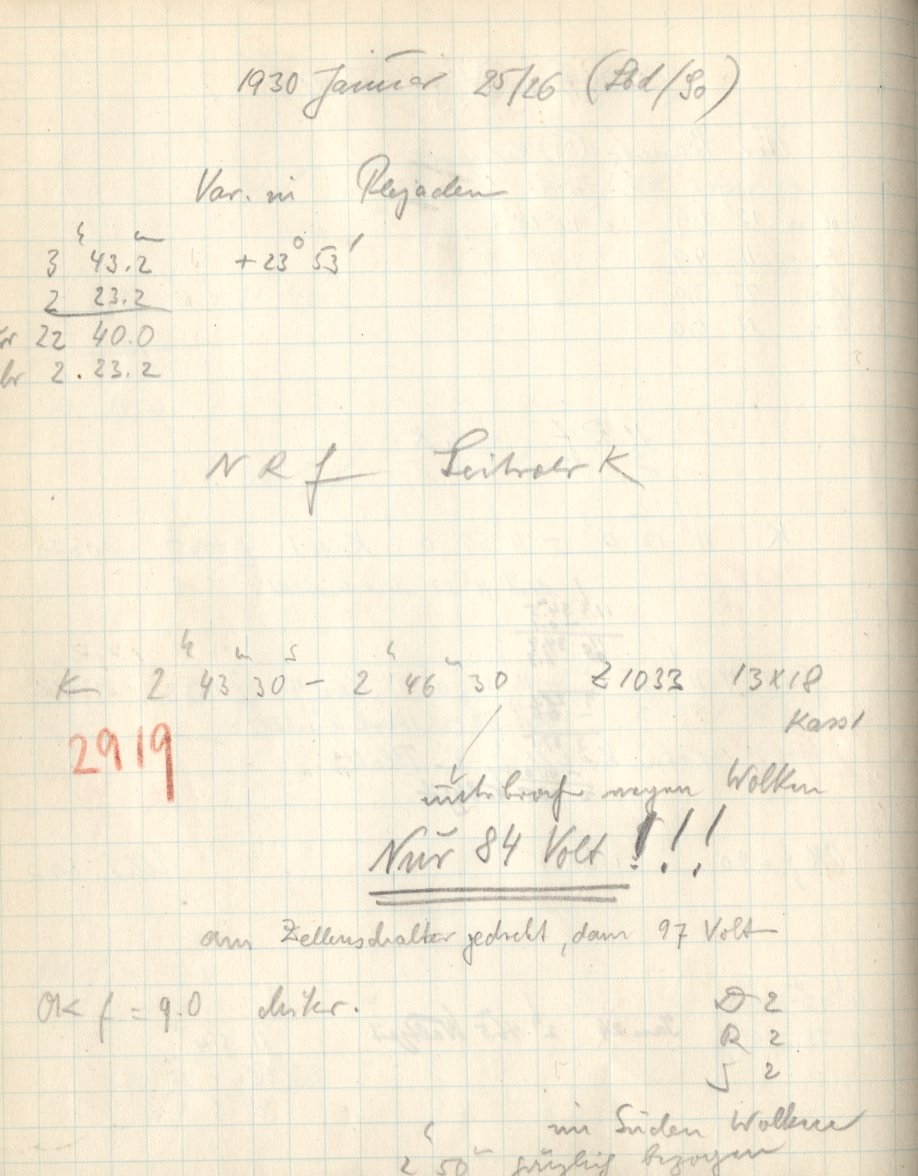 1930 Januar 25/26 (Sbd/So)
Var. in Plejaden
3 h 43.2 m +23° 53'
2 23.2
22 40.0
2. 23.2
N R f Leitrohr K
K 2 h 43 m 30 s – 2 h 46 m 30 Z 1033 13x18
Kass
2919
unterbroch wegen Wolken
Nur 84 Volt !!!
am Zellenschalter gedreht, dann 97 Volt
OK f = 9.0
D 2
R 2
S 2
im Süden Wolken
2 h 50 m gänzlich bezogen